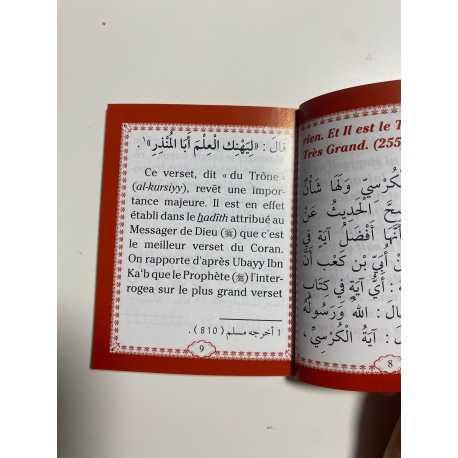 قَالَ : «لِيَهْنِكَ الْعِلْمَ أَبَا الْمُنْذِرِ»¹.
Ce verset, dit « du Trône »
(al-kursiyy), revêt une impor-
tance majeure. Il est en effet
établi dans le hadîth attribué au
Messager de Dieu (ﷺ) que c'est
le meilleur verset du Coran.
On rapporte d'après Ubayy Ibn
Ka'b que le Prophète (ﷺ) l'inter-
rogea sur le plus grand verset
1 أخرجه مسلم (810).
9
rien. Et Il est le T
Très Grand. (255
الْكُرْسِيِّ وَلَهَا شَأْنٌ
صَحَّ الْحَدِيثُ عَنْ
أَنَّهَا أَفْضَلُ آيَةٍ فِي
أُبَيِّ بْنِ كَعْبٍ أَنَّ
: أَيُّ آيَةٍ فِي كِتَابِ
قَالَ : اللهُ وَرَسُولُهُ
: آيَةُ الْكُرْسِيِّ
8